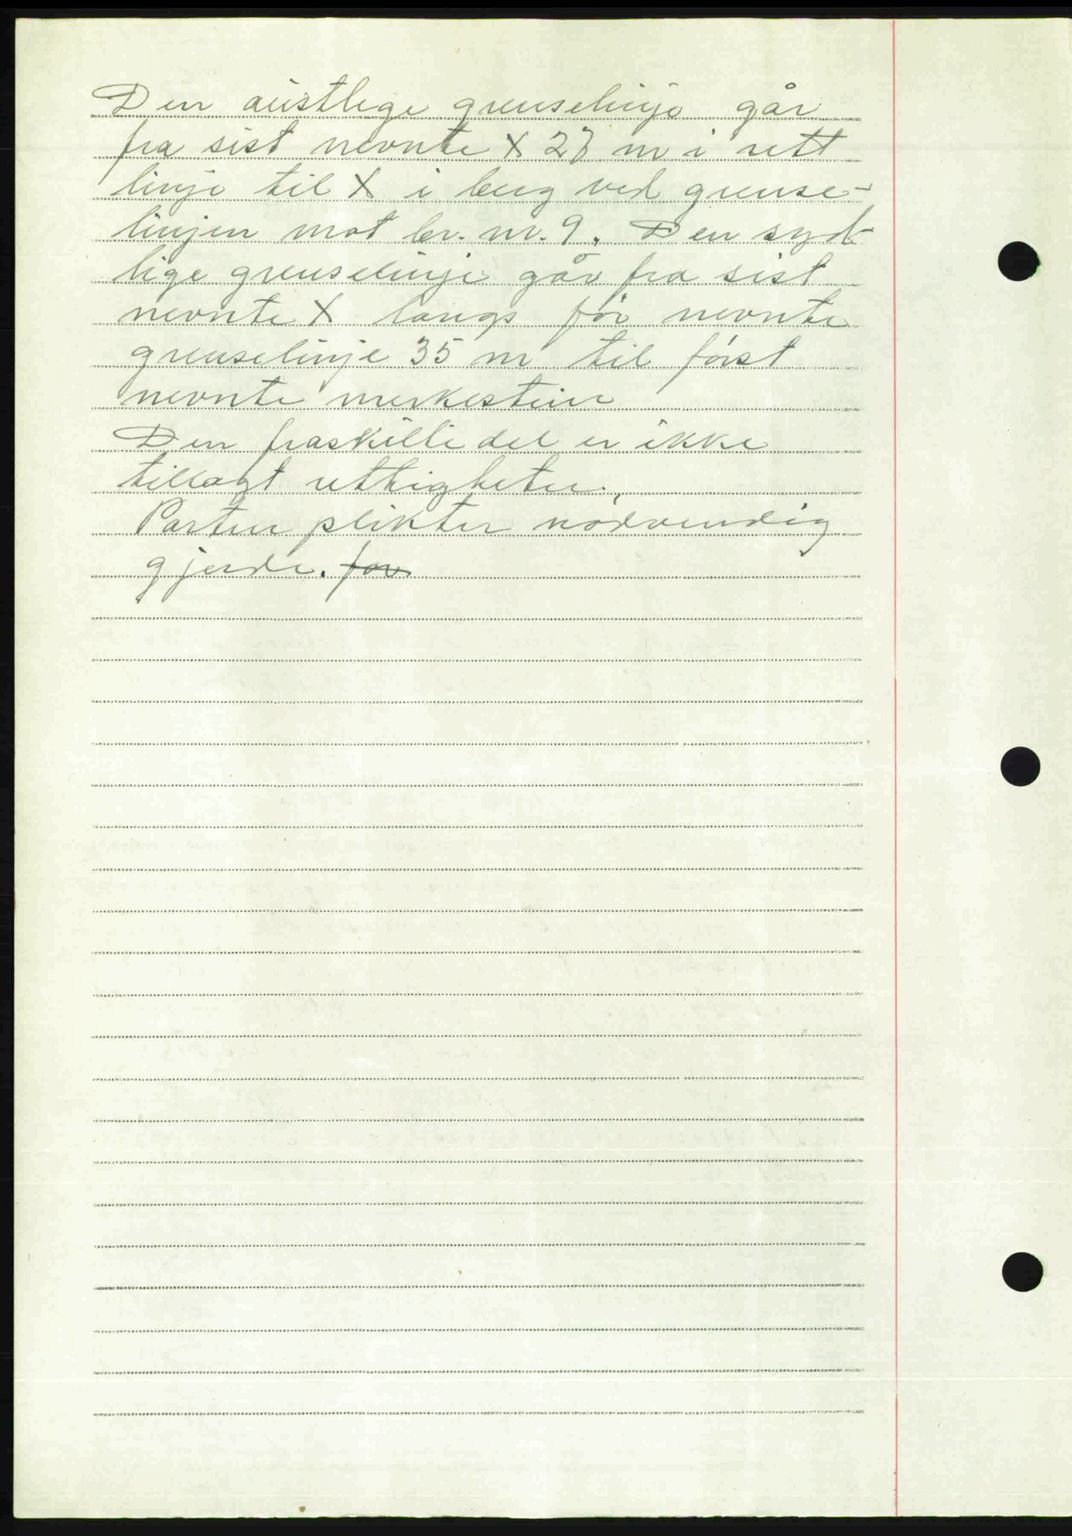 Den austlege grenselinje går
fra sist nevnte X 27 m i rett
linje til X i berg ved grense-
linjen mot br. nr. 9. Den syd-
lige grenselinje går fra sist
nevnte X langs før nevnte
grenselinje 35 m til først
nevnte merkestein
Den fraskilte del er ikke
tillagt rettigheter.
Parten plikter nødvendig
gjerde. for